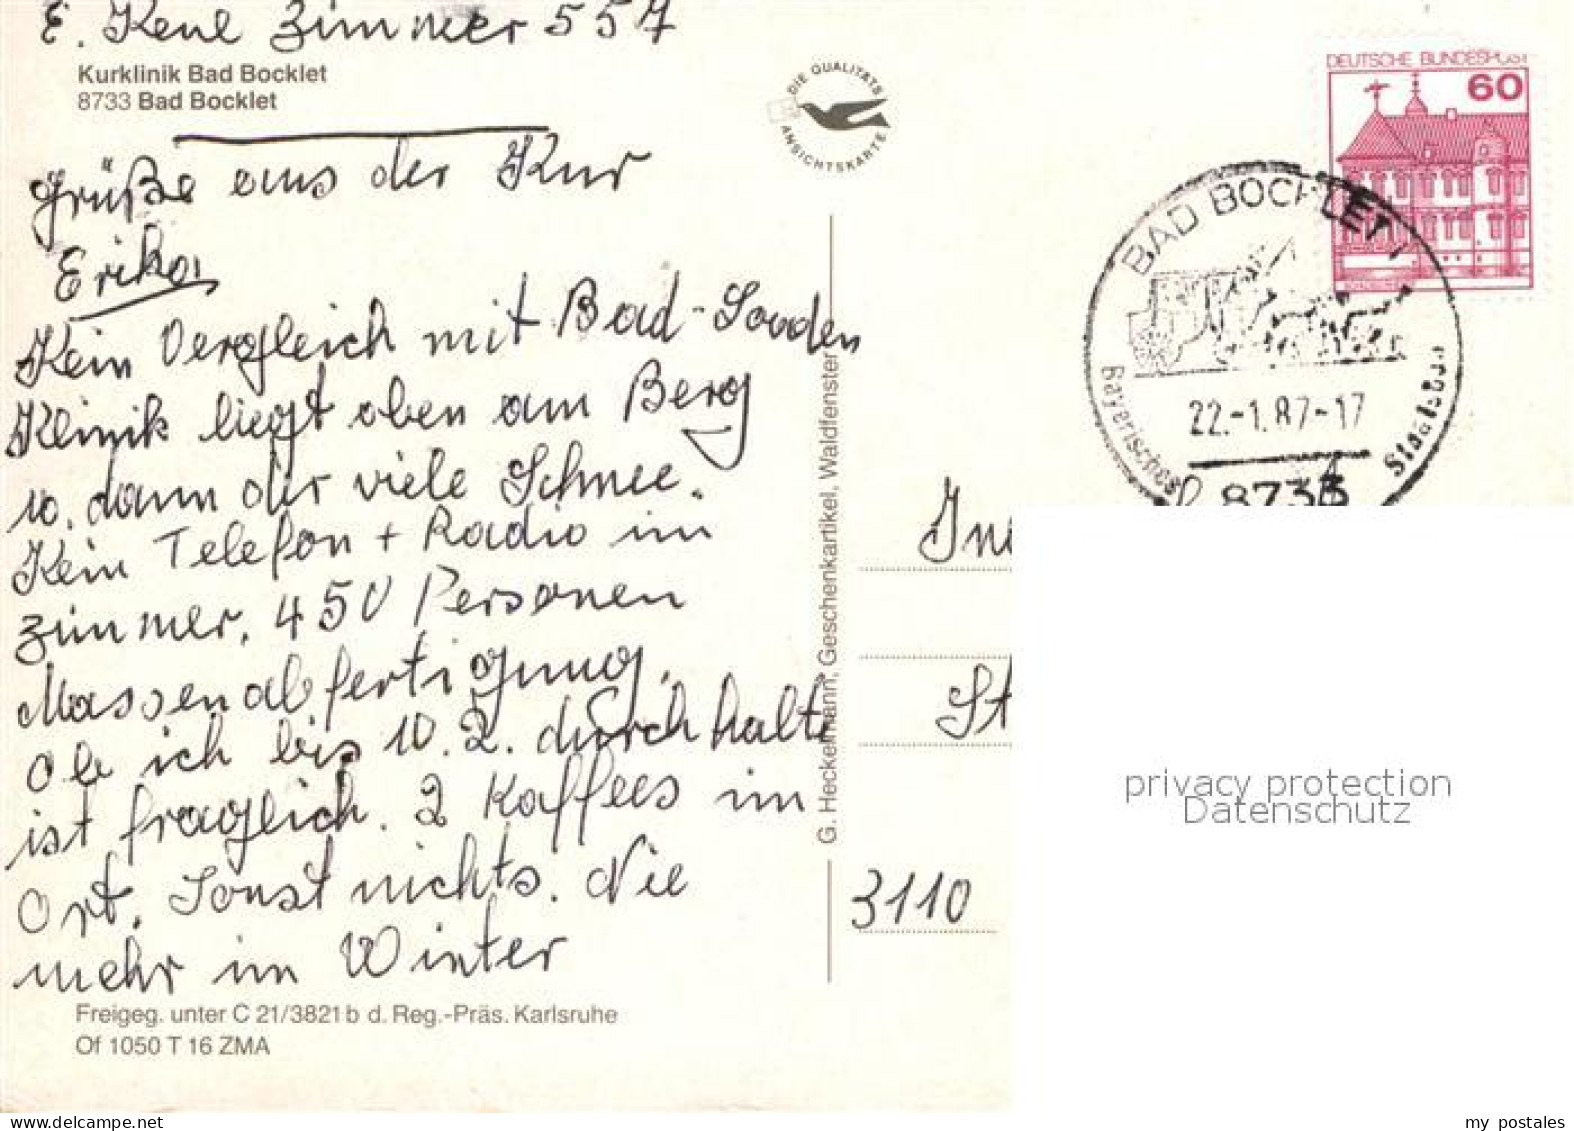 E. Keul Zimmer 557
Kurklinik Bad Bocklet
8733 Bad Bocklet
Grüße aus der Kur
Erika
Kein Vergleich mit Bad-Sooden
Klinik liegt oben am Berg
u. dann der viele Schnee.
Kein Telefon + Radio im
Zimmer. 450 Personen
Massenabfertigung.
Ob ich bis 10.2. durchhalte
ist fraglich. 2 Kaffees im
Ort. Sonst nichts. Nie
mehr im Winter
Freigeg. unter C 21/3821 b d. Reg.-Präs. Karlsruhe
Of 1050 T 16 ZMA
DIE QUALITÄTS
ANSICHTSKARTE
G. Heckelmann, Geschenkartikel, Waldfenster
DEUTSCHE BUNDESPOST
60
BAD BOCKLET 1
22.-1.87-17
Bayerisches Staatsbad
8733
3110
privacy protection
Datenschutz
my postales